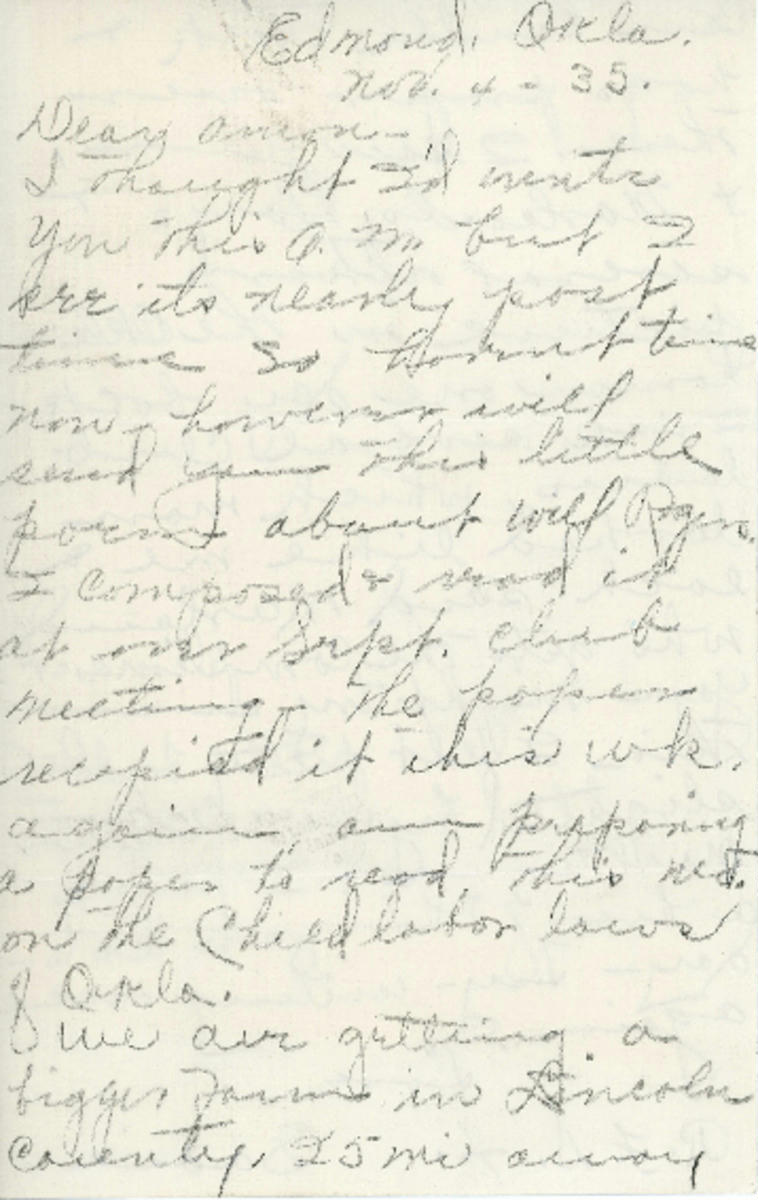 Edmond, Okla.
Nov. 4 - 35.
Dear Amon -
I thought I'd write
you this A.M. but I
see its nearly post
time so haven't time
now, however will
send you this little
poem about Will Rgrs.
I composed & read it
at our Sept. club
meeting - the paper
recopied it this wk.
again, am preparing
a paper to read this Wed.
on the Child labor laws
of Okla.
We are getting a
bigger farm in Lincoln
County, 25 mi away